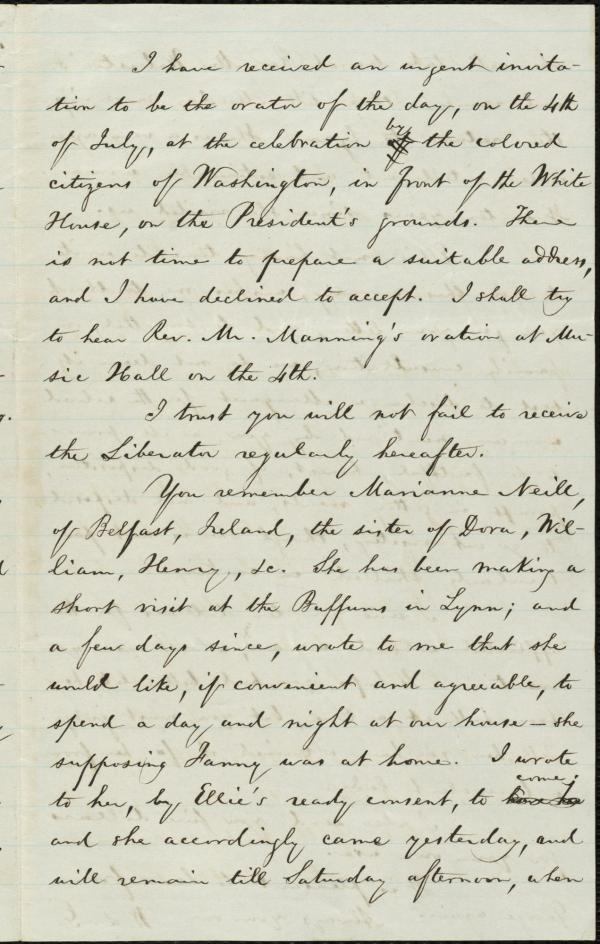 I have received an urgent invita-
tion to be the orator of the day, on the 4th
of July, at the celebration by the colored
citizens of Washington, in front of the White
House, on the President's grounds. There
is not time to prepare a suitable address,
and I have declined to accept. I shall try
to hear Rev. Mr. Manning's oration at Mu-
sic Hall on the 4th.
I trust you will not fail to receive
the Liberator regularly hereafter.
You remember Marianne Neill,
of Belfast, Ireland, the sister of Dora, Wil-
liam, Henry, &c. She has been making a
short visit at the Buffums in Lynn; and
a few days since, wrote to me that she
would like, if convenient and agreeable, to
spend a day and night at our house — she
supposing Fanny was at home. I wrote
to her, by Ellie's ready consent, to come;
and she accordingly came yesterday, and
will remain till Saturday afternoon, when